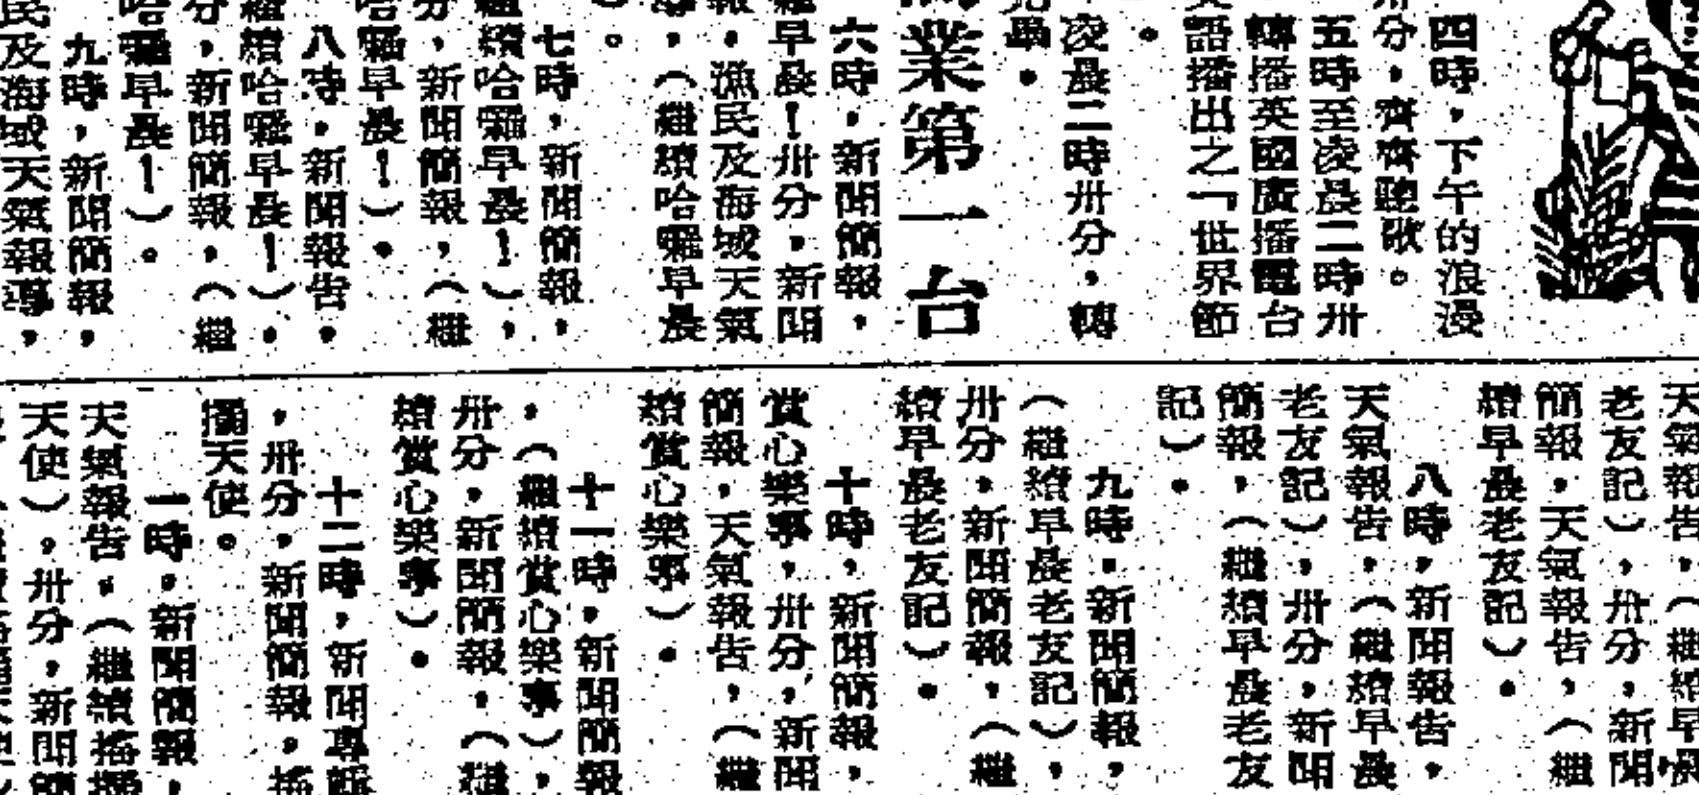 四時，下午的浪漫
分，齊齊聽歌。
五時至凌晨二時卅
轉播英國廣播電台
語播出之「世界節
。
凌晨二時卅分，轉
業第一台
六時，新聞簡報，
早晨！卅分，新聞
，漁民及海域天氣
，（繼續哈囉早晨
。
七時，新聞簡報，
續哈囉早晨！），
，新聞簡報，（繼
哈囉早晨！）。
八時，新聞報告，
繼續哈囉早晨！），
分，新聞簡報，（繼
哈囉早晨！）。
九時，新聞簡報，
民及海域天氣報導，
天氣報告，（繼續早晨
老友記），卅分，新聞
簡報，天氣報告，（繼
續早晨老友記）。
八時，新聞報告，
天氣報告，（繼續早晨
老友記），卅分，新聞
簡報，（繼續早晨老友
記）。
九時，新聞簡報，
（繼續早晨老友記），
卅分，新聞簡報，（繼
續早晨老友記）。
十時，新聞簡報，
賞心樂事，卅分，新聞
簡報，天氣報告，（繼
續賞心樂事）。
十一時，新聞簡報
，（繼續賞心樂事），
卅分，新聞簡報，（繼
續賞心樂事）。
十二時，新聞專輯
，卅分，新聞簡報，搖
擺天使。
一時，新聞簡報，
天氣報告，（繼續搖擺
天使）。卅分，新聞簡